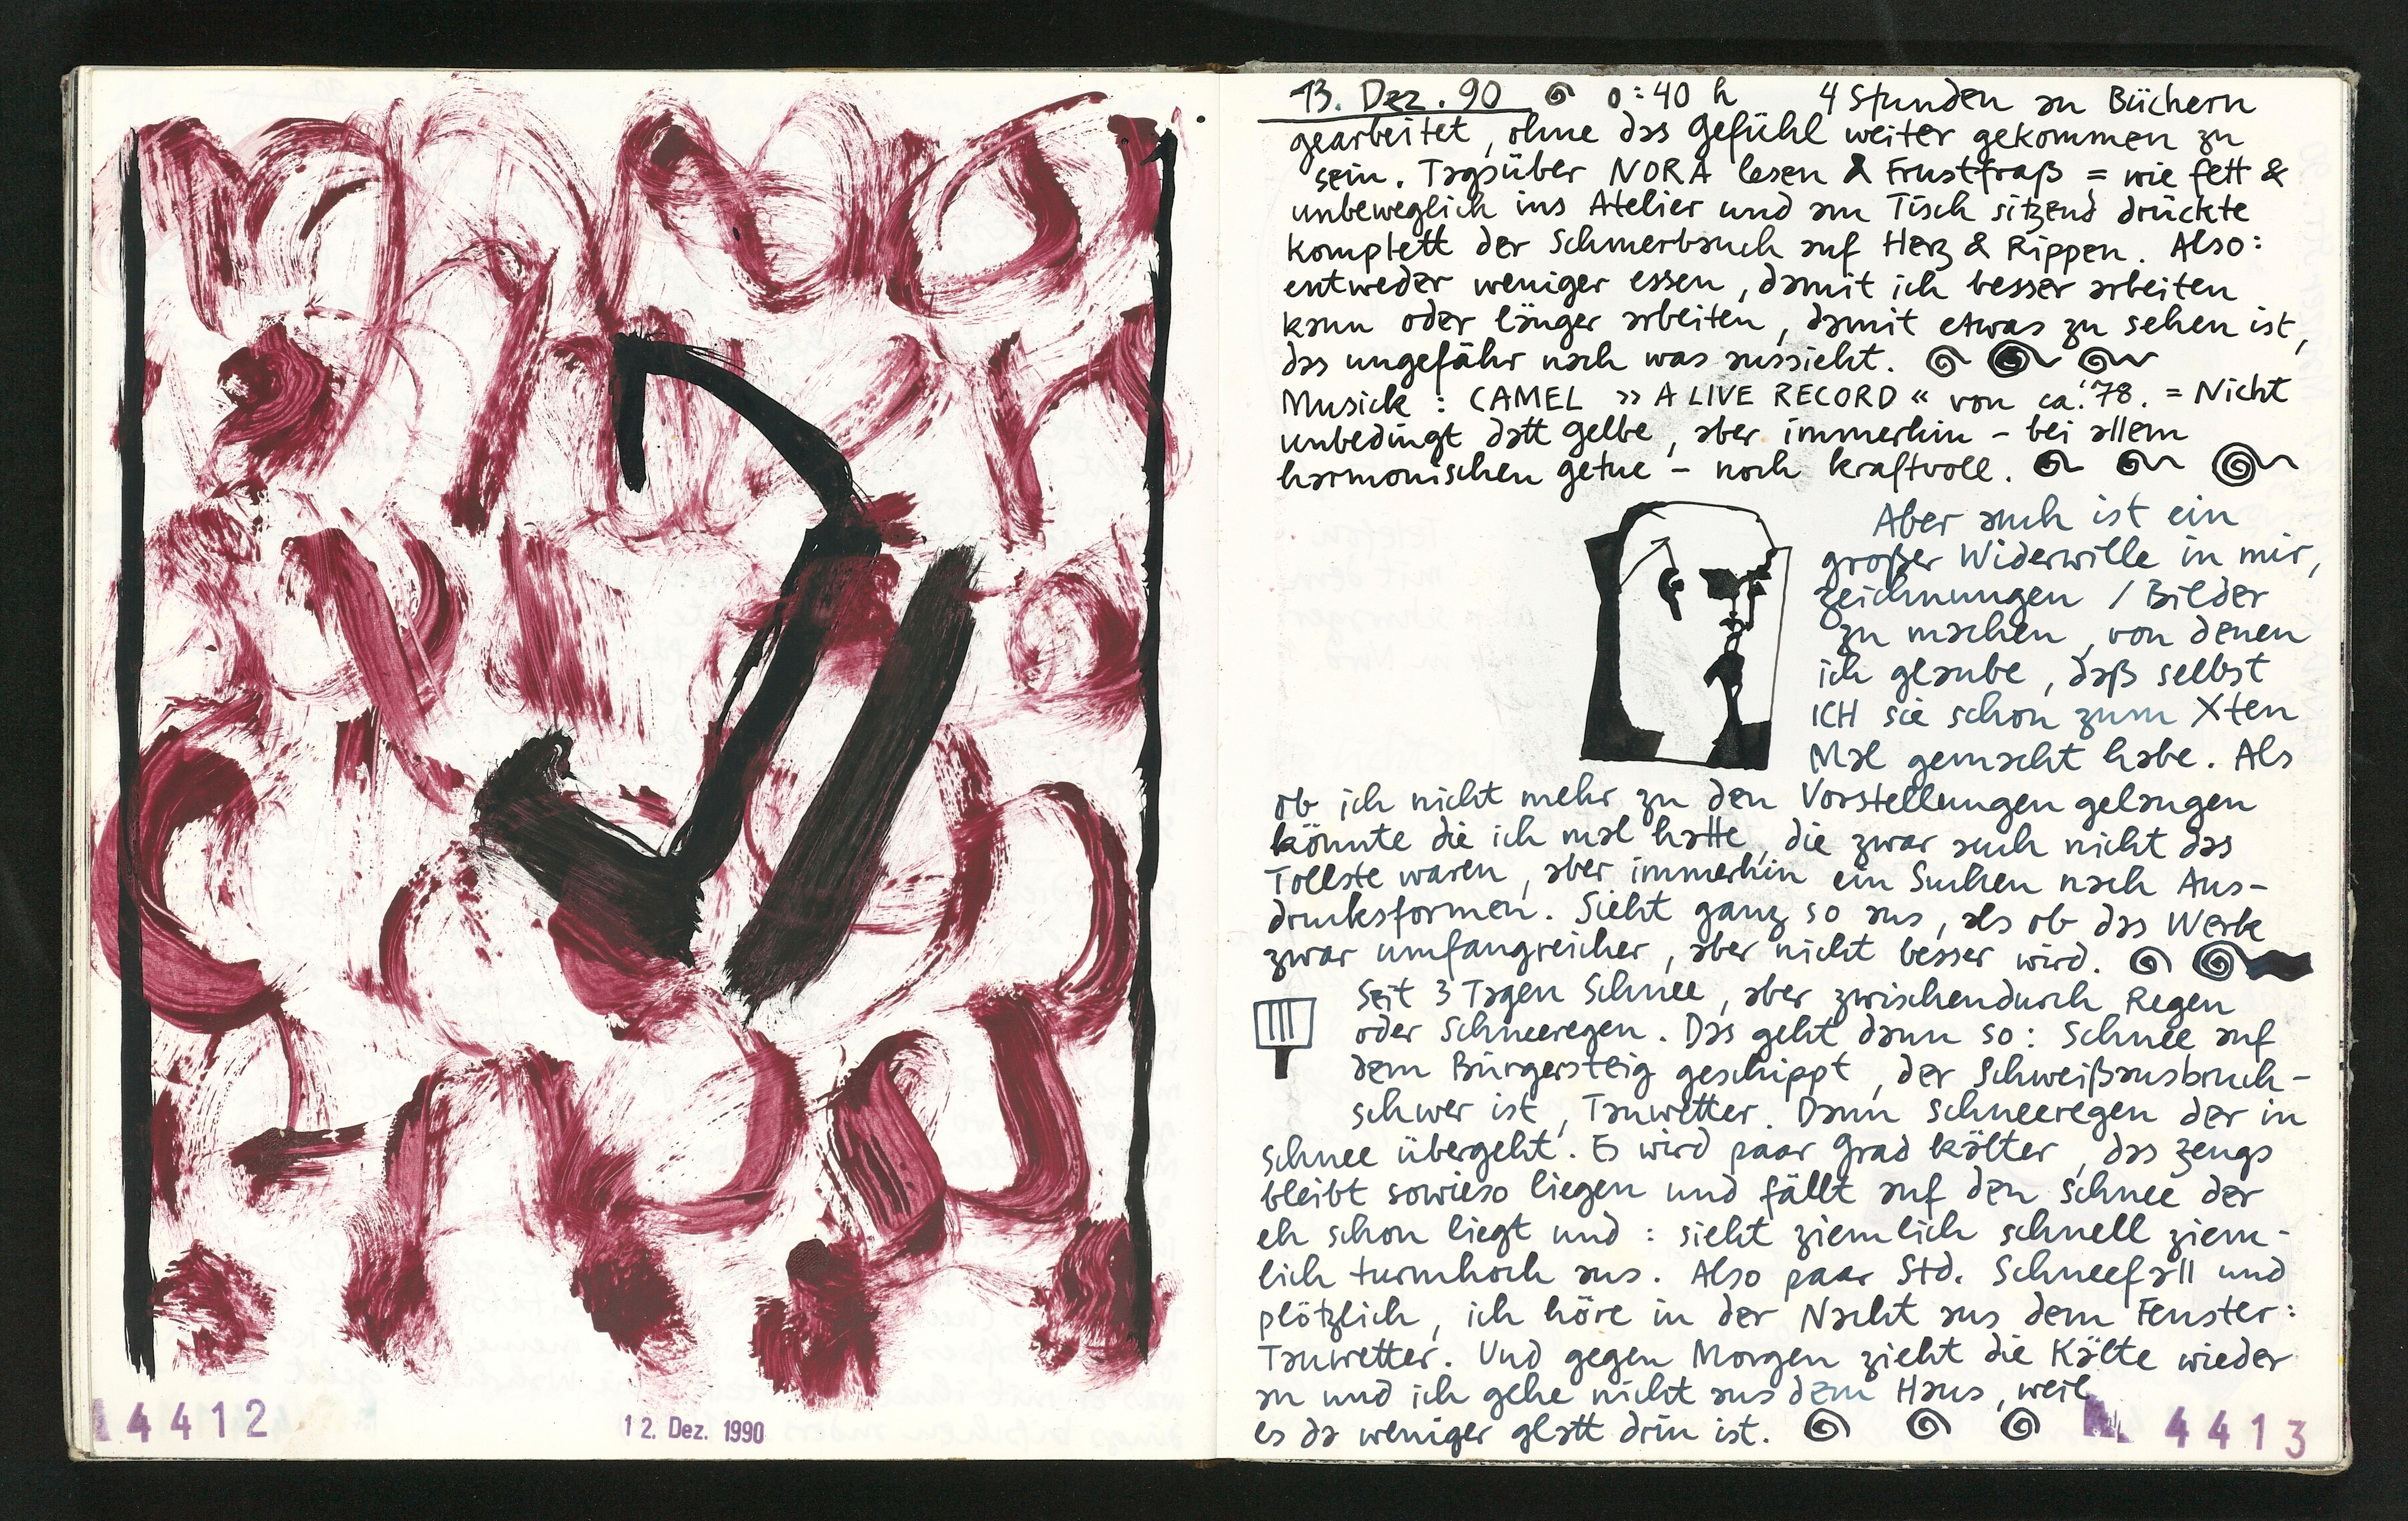 4412
12. Dez. 1990
13. Dez. 90 0:40 h 4 Stunden an Büchern
gearbeitet, ohne das Gefühl weiter gekommen zu
sein. Tagsüber NORA lesen & Frustfraß = wie fett &
unbeweglich ins Atelier und am Tisch sitzend drückte
komplett der Schmerbauch auf Herz & Rippen. Also:
entweder weniger essen, damit ich besser arbeiten
kann oder länger arbeiten, damit etwas zu sehen ist,
das ungefähr nach was aussieht.
Musick: CAMEL »A LIVE RECORD« von ca. '78. = Nicht
unbedingt datt gelbe, aber immerhin – bei allem
harmonischen getue – noch kraftvoll.
Aber auch ist ein
großer Widerwille in mir,
zeichnungen / Bilder
zu machen, von denen
ich glaube, daß selbst
ICH sie schon zum Xten
Mal gemacht habe. Als
ob ich nicht mehr zu den Vorstellungen gelangen
könnte die ich mal hatte, die zwar auch nicht das
Tollste waren, aber immerhin ein Suchen nach Aus-
drucksformen. Sieht ganz so aus, als ob das Werk
zwar umfangreicher, aber nicht besser wird.
Seit 3 Tagen Schnee, aber zwischendurch Regen
oder Schneeregen. Das geht dann so: Schnee auf
dem Bürgersteig geschippt, der Schweißausbruch-
schwer ist, Tauwetter. Dann Schneeregen der in
Schnee übergeht. Es wird paar Grad kälter, das zeugs
bleibt sowieso liegen und fällt auf den Schnee der
eh schon liegt und: sieht ziemlich schnell ziem-
lich turmhoch aus. Also paar Std. Schneefall und
plötzlich, ich höre in der Nacht aus dem Fenster:
Tauwetter. Und gegen Morgen zieht die Kälte wieder
an und ich gehe nicht aus dem Haus, weil
es da weniger glatt drin ist.
4413